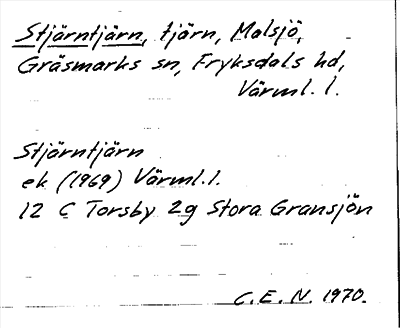 Stjärntjärn, tjärn, Molsjö,
Gräsmarks sn, Fryksdals hd,
Värml. l.
Stjärntjärn
ek (1969) Värml. l.
12 C Torsby 2g Stora Gransjön
C. E. N. 1970.